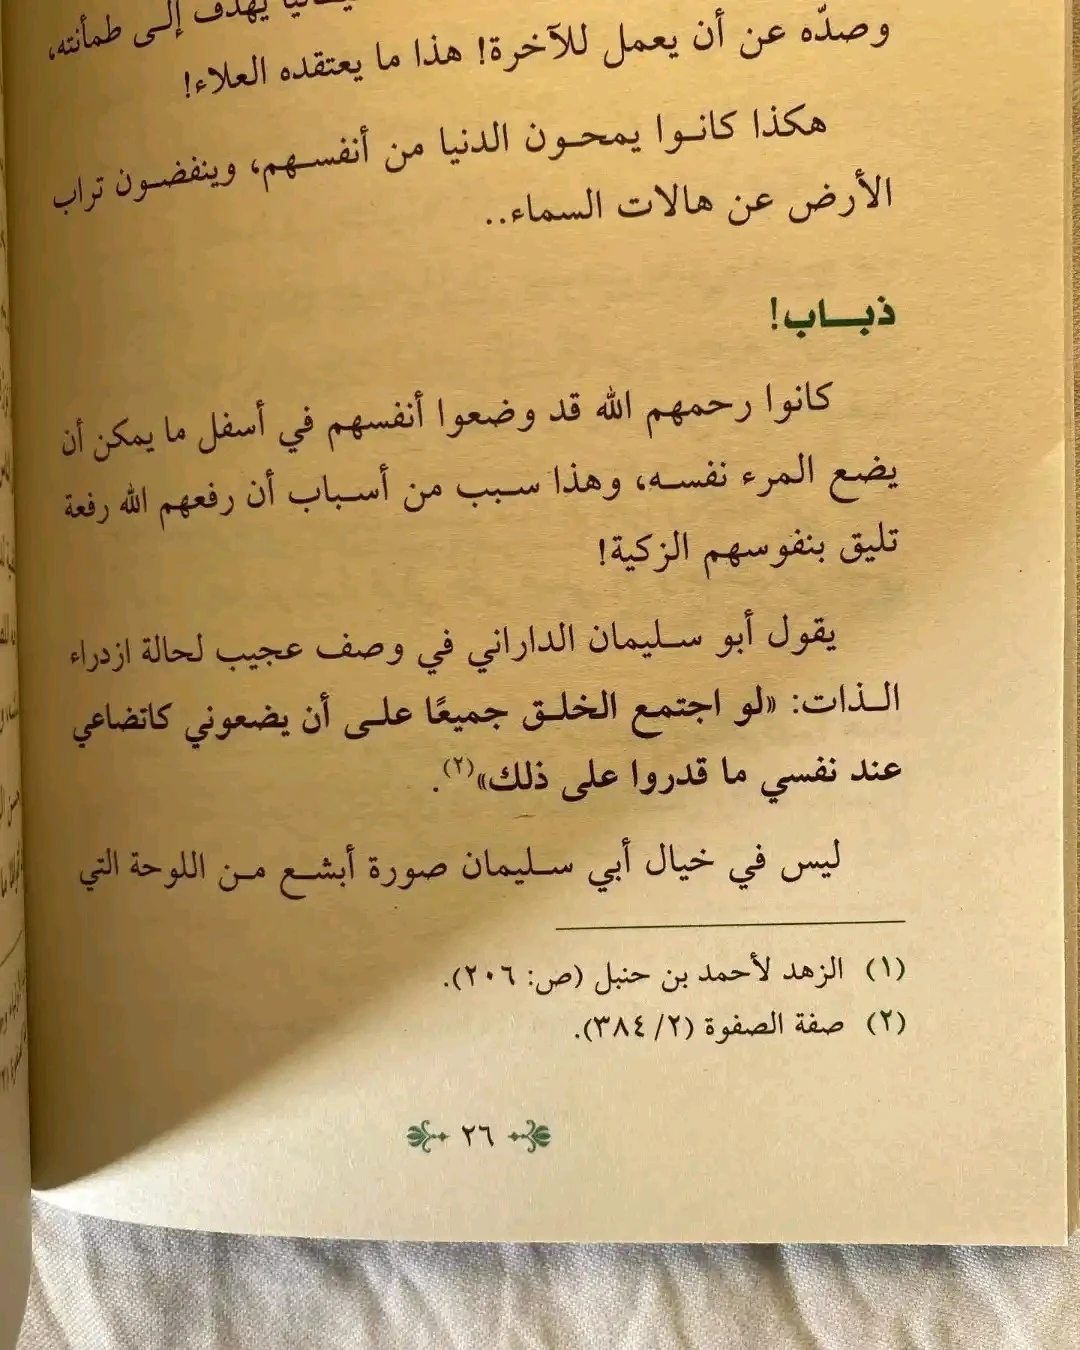 يهدف إلى طمأنته،
وصدّه عن أن يعمل للآخرة! هذا ما يعتقده العلاء!
هكذا كانوا يمحون الدنيا من أنفسهم، وينفضون تراب
الأرض عن هالات السماء..
ذباب!
كانوا رحمهم الله قد وضعوا أنفسهم في أسفل ما يمكن أن
يضع المرء نفسه، وهذا سبب من أسباب أن رفعهم الله رفعة
تليق بنفوسهم الزكية!
يقول أبو سليمان الداراني في وصف عجيب لحالة ازدراء
الذات: «لو اجتمع الخلق جميعًا على أن يضعوني كاتضاعي
عند نفسي ما قدروا على ذلك»(٢).
ليس في خيال أبي سليمان صورة أبشع من اللوحة التي
(١) الزهد لأحمد بن حنبل (ص: ٢٠٦).
(٢) صفة الصفوة (٢/ ٣٨٤).
٢٦